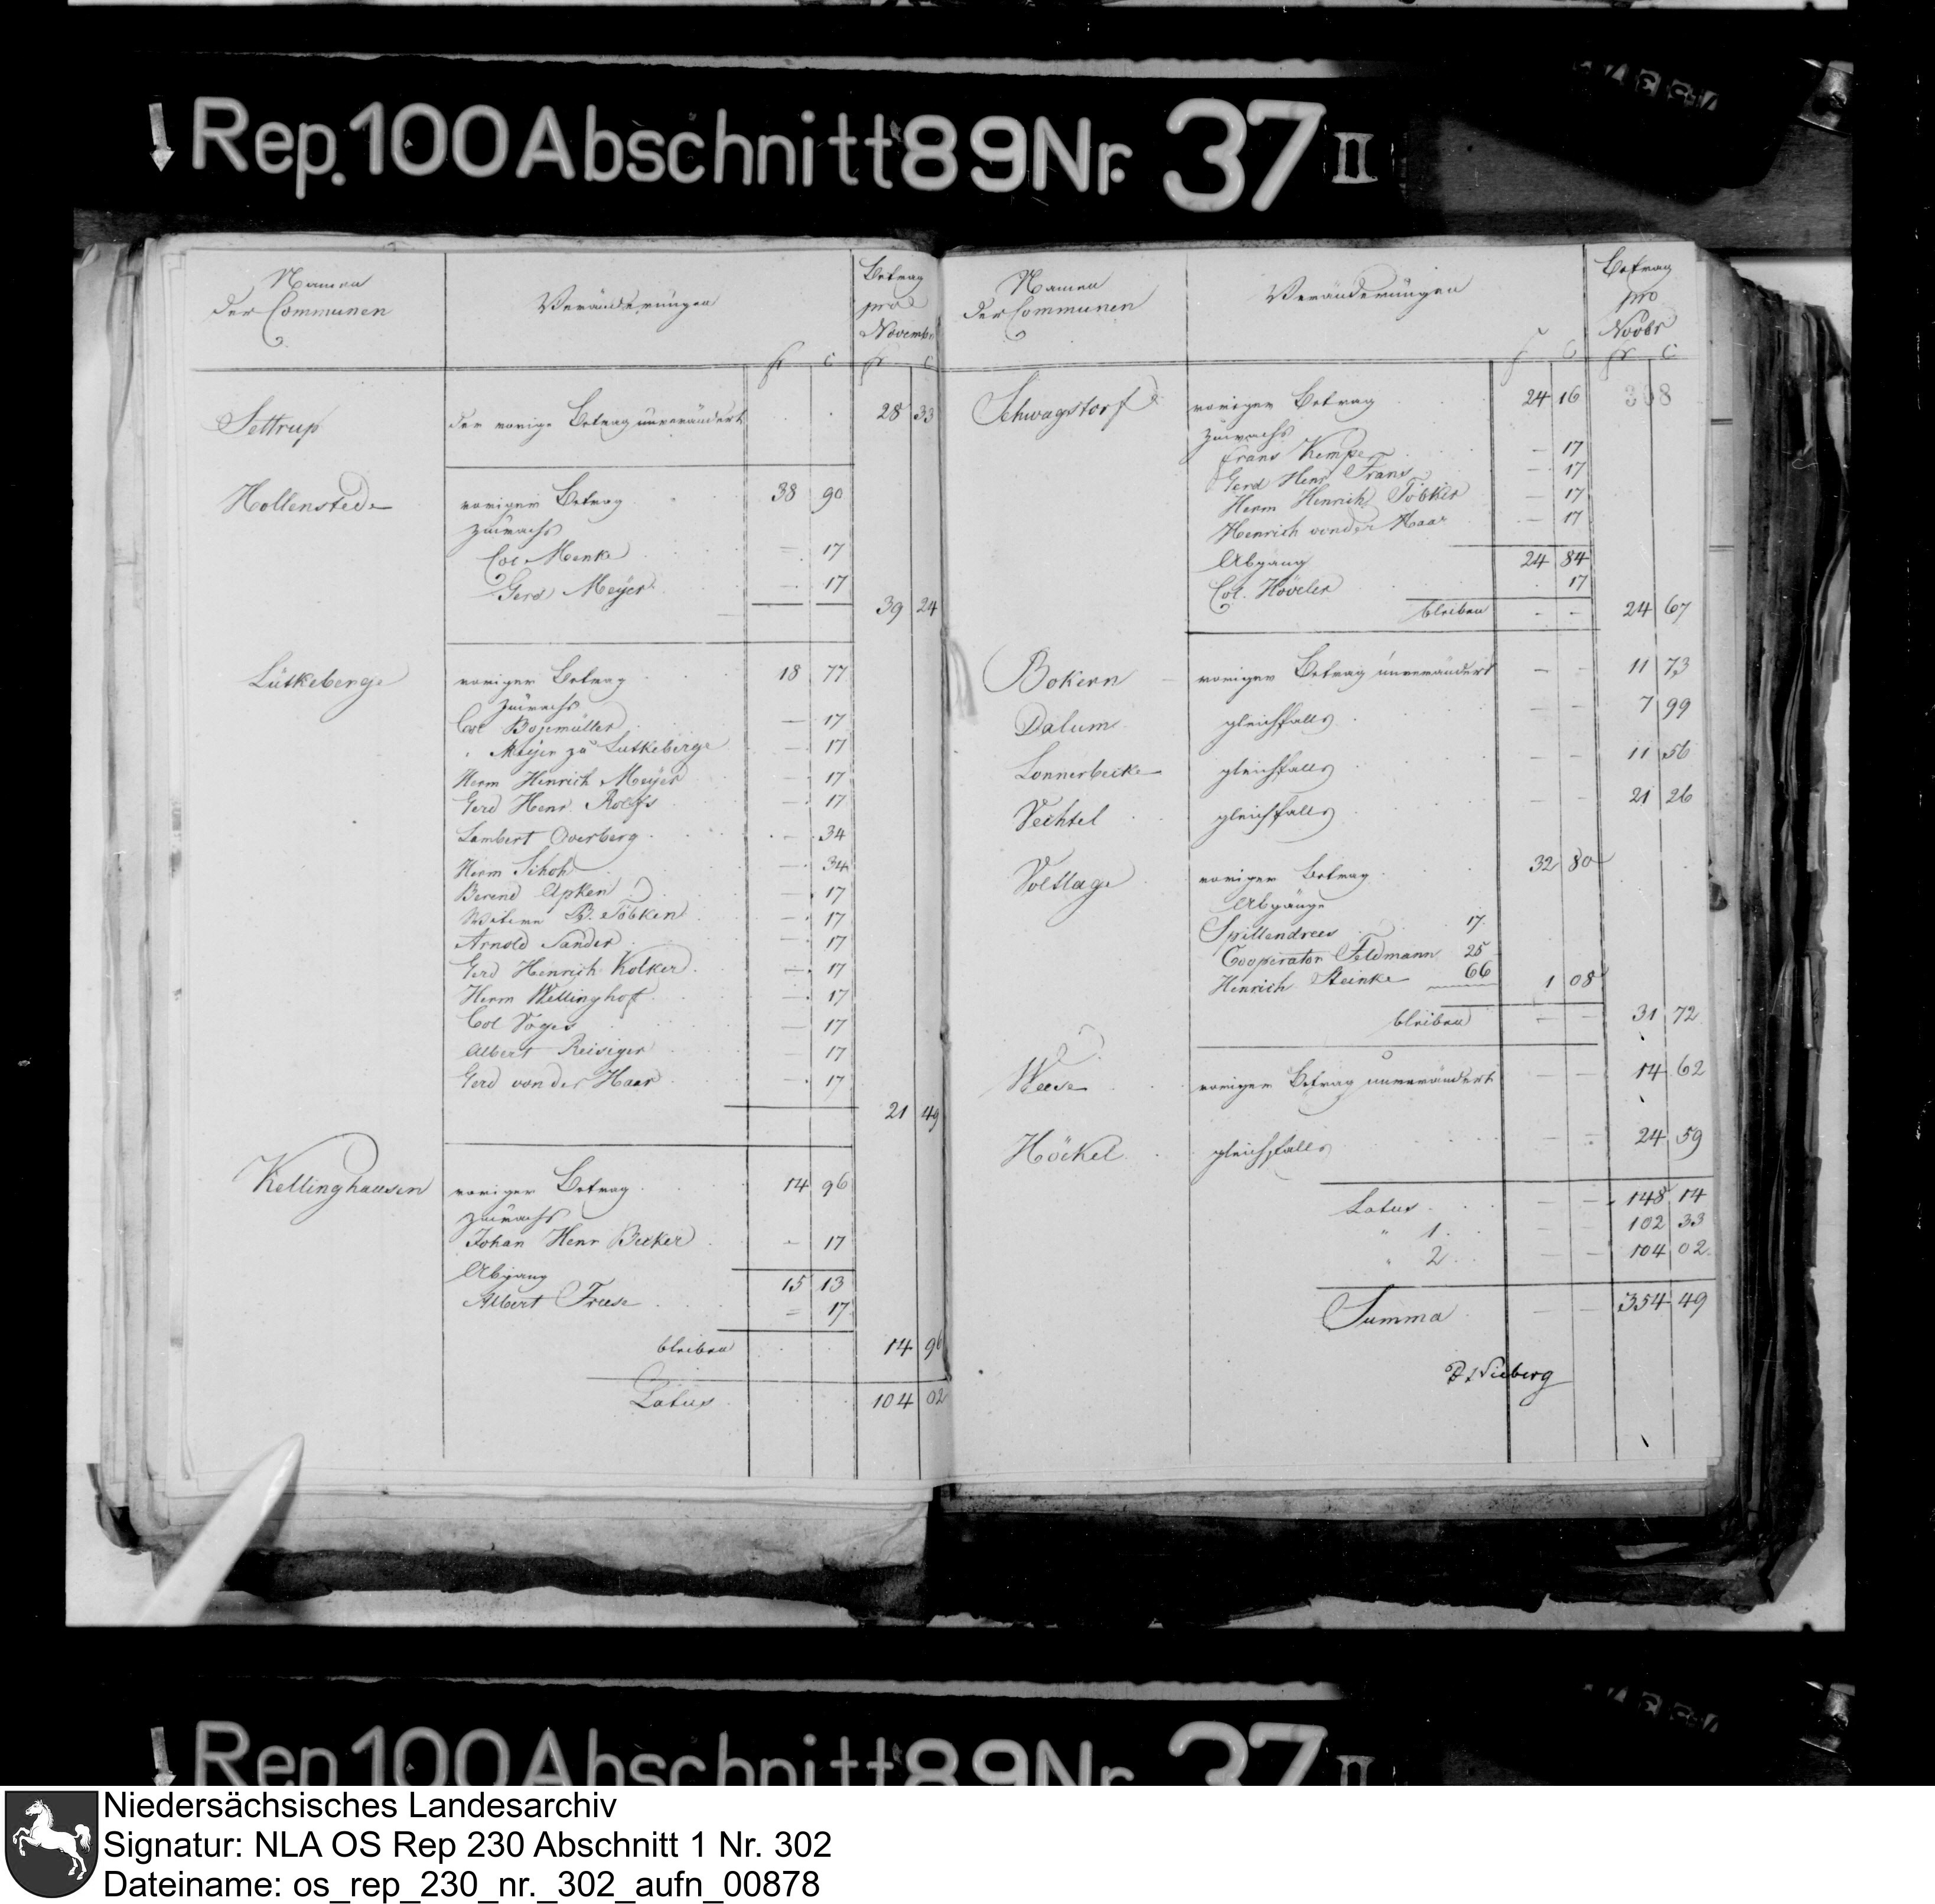 Rep. 100 Abschnitt 89 Nr. 37 II
Namen der Communen Veränderungen Betrag pro November
fr c fr c
Settrup der vorige Betrag unverändert 28 33
Hollenstede voriger Betrag 38 90
Zuwachs
Col Menke — 17
Gerd Meyer — 17
39 24
Lütkeberge voriger Betrag 18 77
Zuwachs
Col Bopmüller — 17
" Meyer zu Lutkeberge — 17
Herm Henrich Meyer — 17
Gerd Henr. Rolfs — 17
Lambert Overberg — 34
Herm Schoh — 34
Berend Apken — 17
Witwe B. Többen — 17
Arnold Sander — 17
Gerd Henrich Kolker — 17
Herm Wellinghof — 17
Col Voges — 17
Albert Reisiger — 17
Gerd von der Haar — 17
21 49
Kellinghausen voriger Betrag 14 96
Zuwachs
Johan Henr Becker — 17
Abgang 15 13
Albert Freese = 17
bleiben 14 96
Latus 104 02
Namen der Communen Veränderungen Betrag pro Novbr
f C fr C
368
Schwagstorf voriger Betrag 24 16
Zuwachs
Frans Kempe — 17
Gerd Henr Frans — 17
Herm Henrich Töbker — 17
Henrich von der Haar — 17
Abgang 24 84
Col. Höveler 17
bleiben - - 24 67
Bokern voriger Betrag unverändert — - 11 73
Dalum gleichfalls — - 7 99
Lonnerbecke gleichfalls — - 11 56
Vechtel gleichfalls — - 21 26
Voltlage voriger Betrag 32 80
Abgänge
Spillendrees 17
Cooperator Feldmann 25
Henrich Steinke 66 1 08
bleiben — - 31 72
Weese voriger Betrag unverändert — — 14 62
Höckel gleichfalls — - 24 59
Latus — — 148 14
" 1. — — 102 33
" 2 — — 104 02
Summa — — 354 49
Nieberg
Rep. 100 Abschnitt 89 Nr. 37 II
Niedersächsisches Landesarchiv
Signatur: NLA OS Rep 230 Abschnitt 1 Nr. 302
Dateiname: os_rep_230_nr._302_aufn_00878